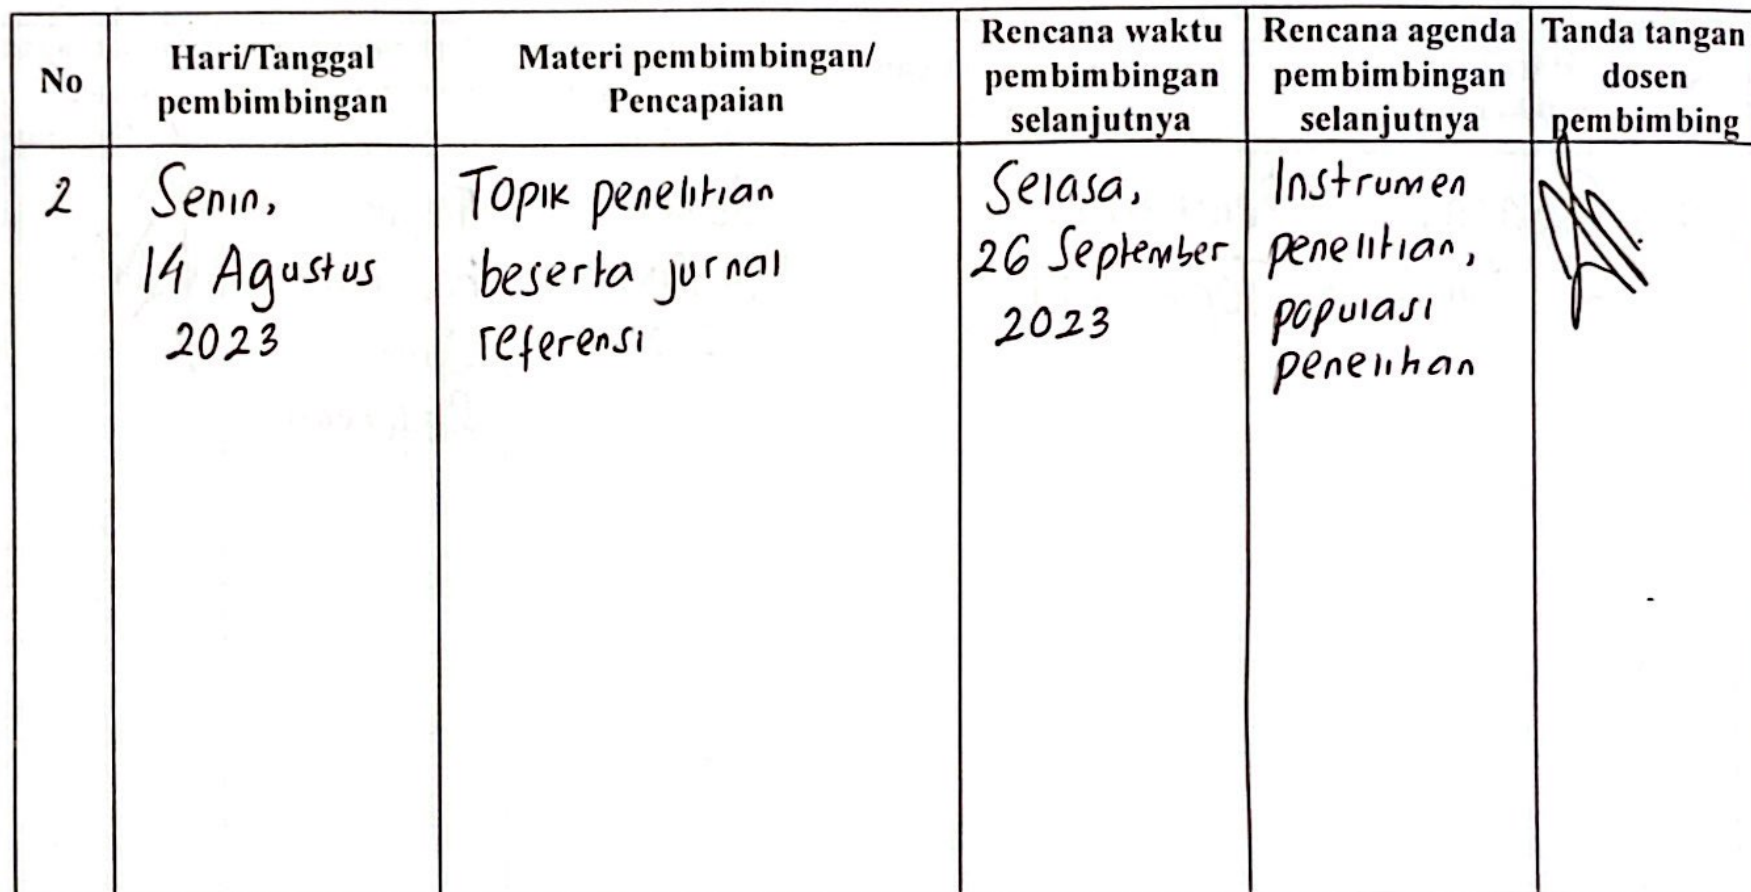 No
Hari/Tanggal
pembimbingan
Materi pembimbingan/
Pencapaian
Rencana waktu
pembimbingan
selanjutnya
Rencana agenda
pembimbingan
selanjutnya
Tanda tangan
dosen
pembimbing
2
Senin,
14 Agustus
2023
Topik penelitian
beserta jurnal
referensi
Selasa,
26 September
2023
Instrumen
penelitian,
populasi
penelitian